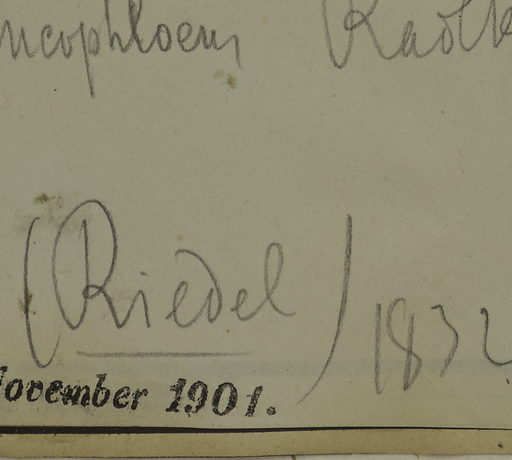 ncophloeum Radlk
(Riedel) 1832
November 1901.